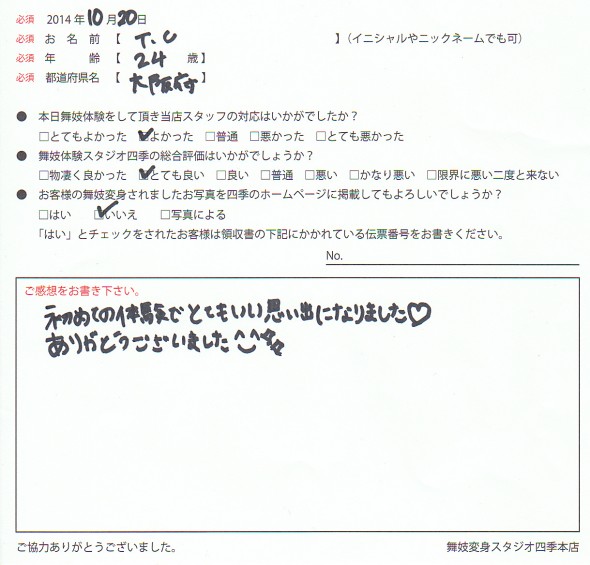 必須 2014年10月20日
必須 お名前【 T.C 】(イニシャルやニックネームでも可)
必須 年齢【 24 歳】
必須 都道府県名【 大阪府 】
● 本日舞妓体験をして頂き当店スタッフの対応はいかがでしたか？
□とてもよかった ☑よかった □普通 □悪かった □とても悪かった
● 舞妓体験スタジオ四季の総合評価はいかがでしょうか？
□物凄く良かった ☑とても良い □良い □普通 □悪い □かなり悪い □限界に悪い二度と来ない
● お客様の舞妓変身されましたお写真を四季のホームページに掲載してもよろしいでしょうか？
□はい ☑いいえ □写真による
「はい」とチェックをされたお客様は領収書の下記にかかれている伝票番号をお書きください。
No.
ご感想をお書き下さい。
初めての体験でとてもいい思い出になりました♡
ありがとうございました^_^☆☆
ご協力ありがとうございました。 舞妓変身スタジオ四季本店